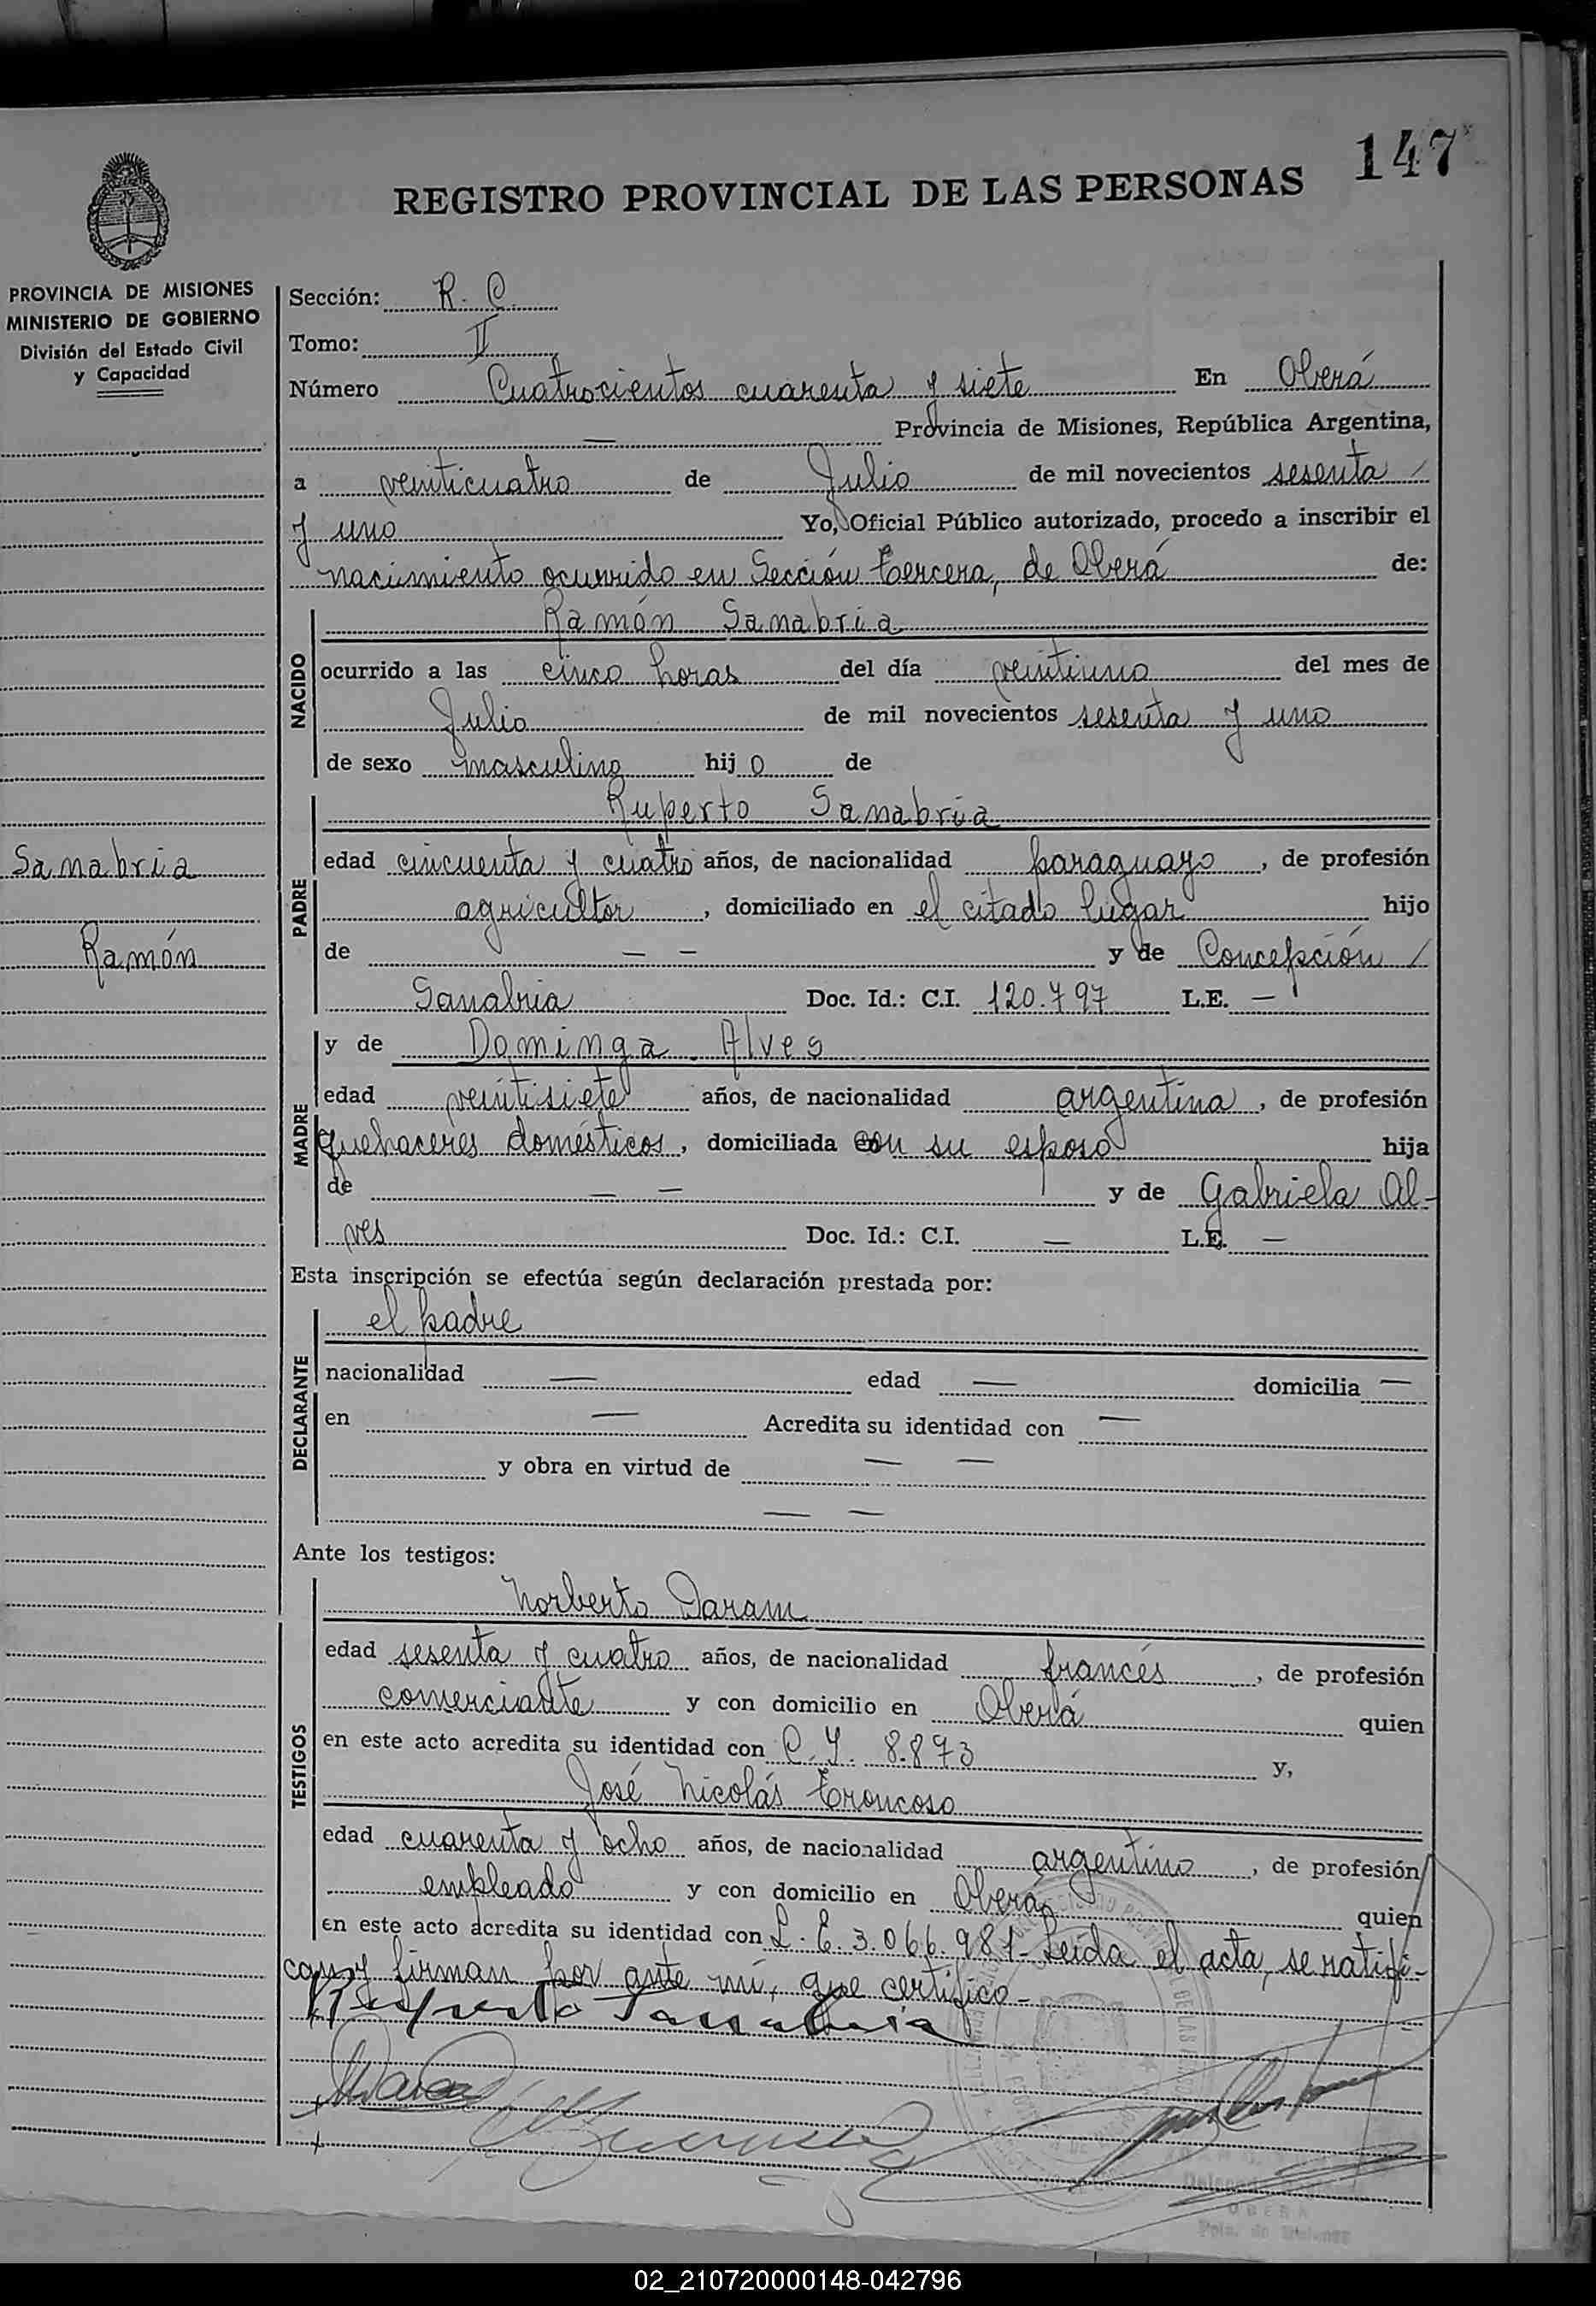 147
REGISTRO PROVINCIAL DE LAS PERSONAS
PROVINCIA DE MISIONES
MINISTERIO DE GOBIERNO
División del Estado Civil
y Capacidad
Sanabria
Ramón
Sección: R. C.
Tomo: II
Número Cuatrocientos cuarenta y siete En Oberá
— Provincia de Misiones, República Argentina,
a veinticuatro de Julio de mil novecientos sesenta /
y uno Yo, Oficial Público autorizado, procedo a inscribir el
nacimiento ocurrido en Sección tercera, de Oberá de:
NACIDO
Ramón Sanabria
ocurrido a las cinco horas del día veintiuno del mes de
Julio de mil novecientos sesenta y uno
de sexo masculino hijo de
PADRE
Ruperto Sanabria
edad cincuenta y cuatro años, de nacionalidad paraguayo, de profesión
agricultor, domiciliado en el citado lugar hijo
de — — y de Concepción /
Sanabria Doc. Id.: C.I. 120.797 L.E. —
MADRE
y de Dominga Alves
edad veintisiete años, de nacionalidad argentina, de profesión
quehaceres domésticos, domiciliada con su esposo hija
de — — y de Gabriela Al-
ves Doc. Id.: C.I. — L.E. —
Esta inscripción se efectúa según declaración prestada por:
DECLARANTE
el padre
nacionalidad — edad — domicilia —
en — Acredita su identidad con —
y obra en virtud de — —
— —
Ante los testigos:
TESTIGOS
Norberto Daram
edad sesenta y cuatro años, de nacionalidad francés, de profesión
comerciante y con domicilio en Oberá quien
en este acto acredita su identidad con C. I. 8.873 y,
José Nicolás Troncoso
edad cuarenta y ocho años, de nacionalidad argentino, de profesión
empleado y con domicilio en Oberá quien
en este acto acredita su identidad con L. E. 3.066.981- Leída el acta, se ratifi-
can y firman por ante mí, que certifico-
Ruperto Sanabria
OBERA
Pcia. de Misiones
02_210720000148-042796